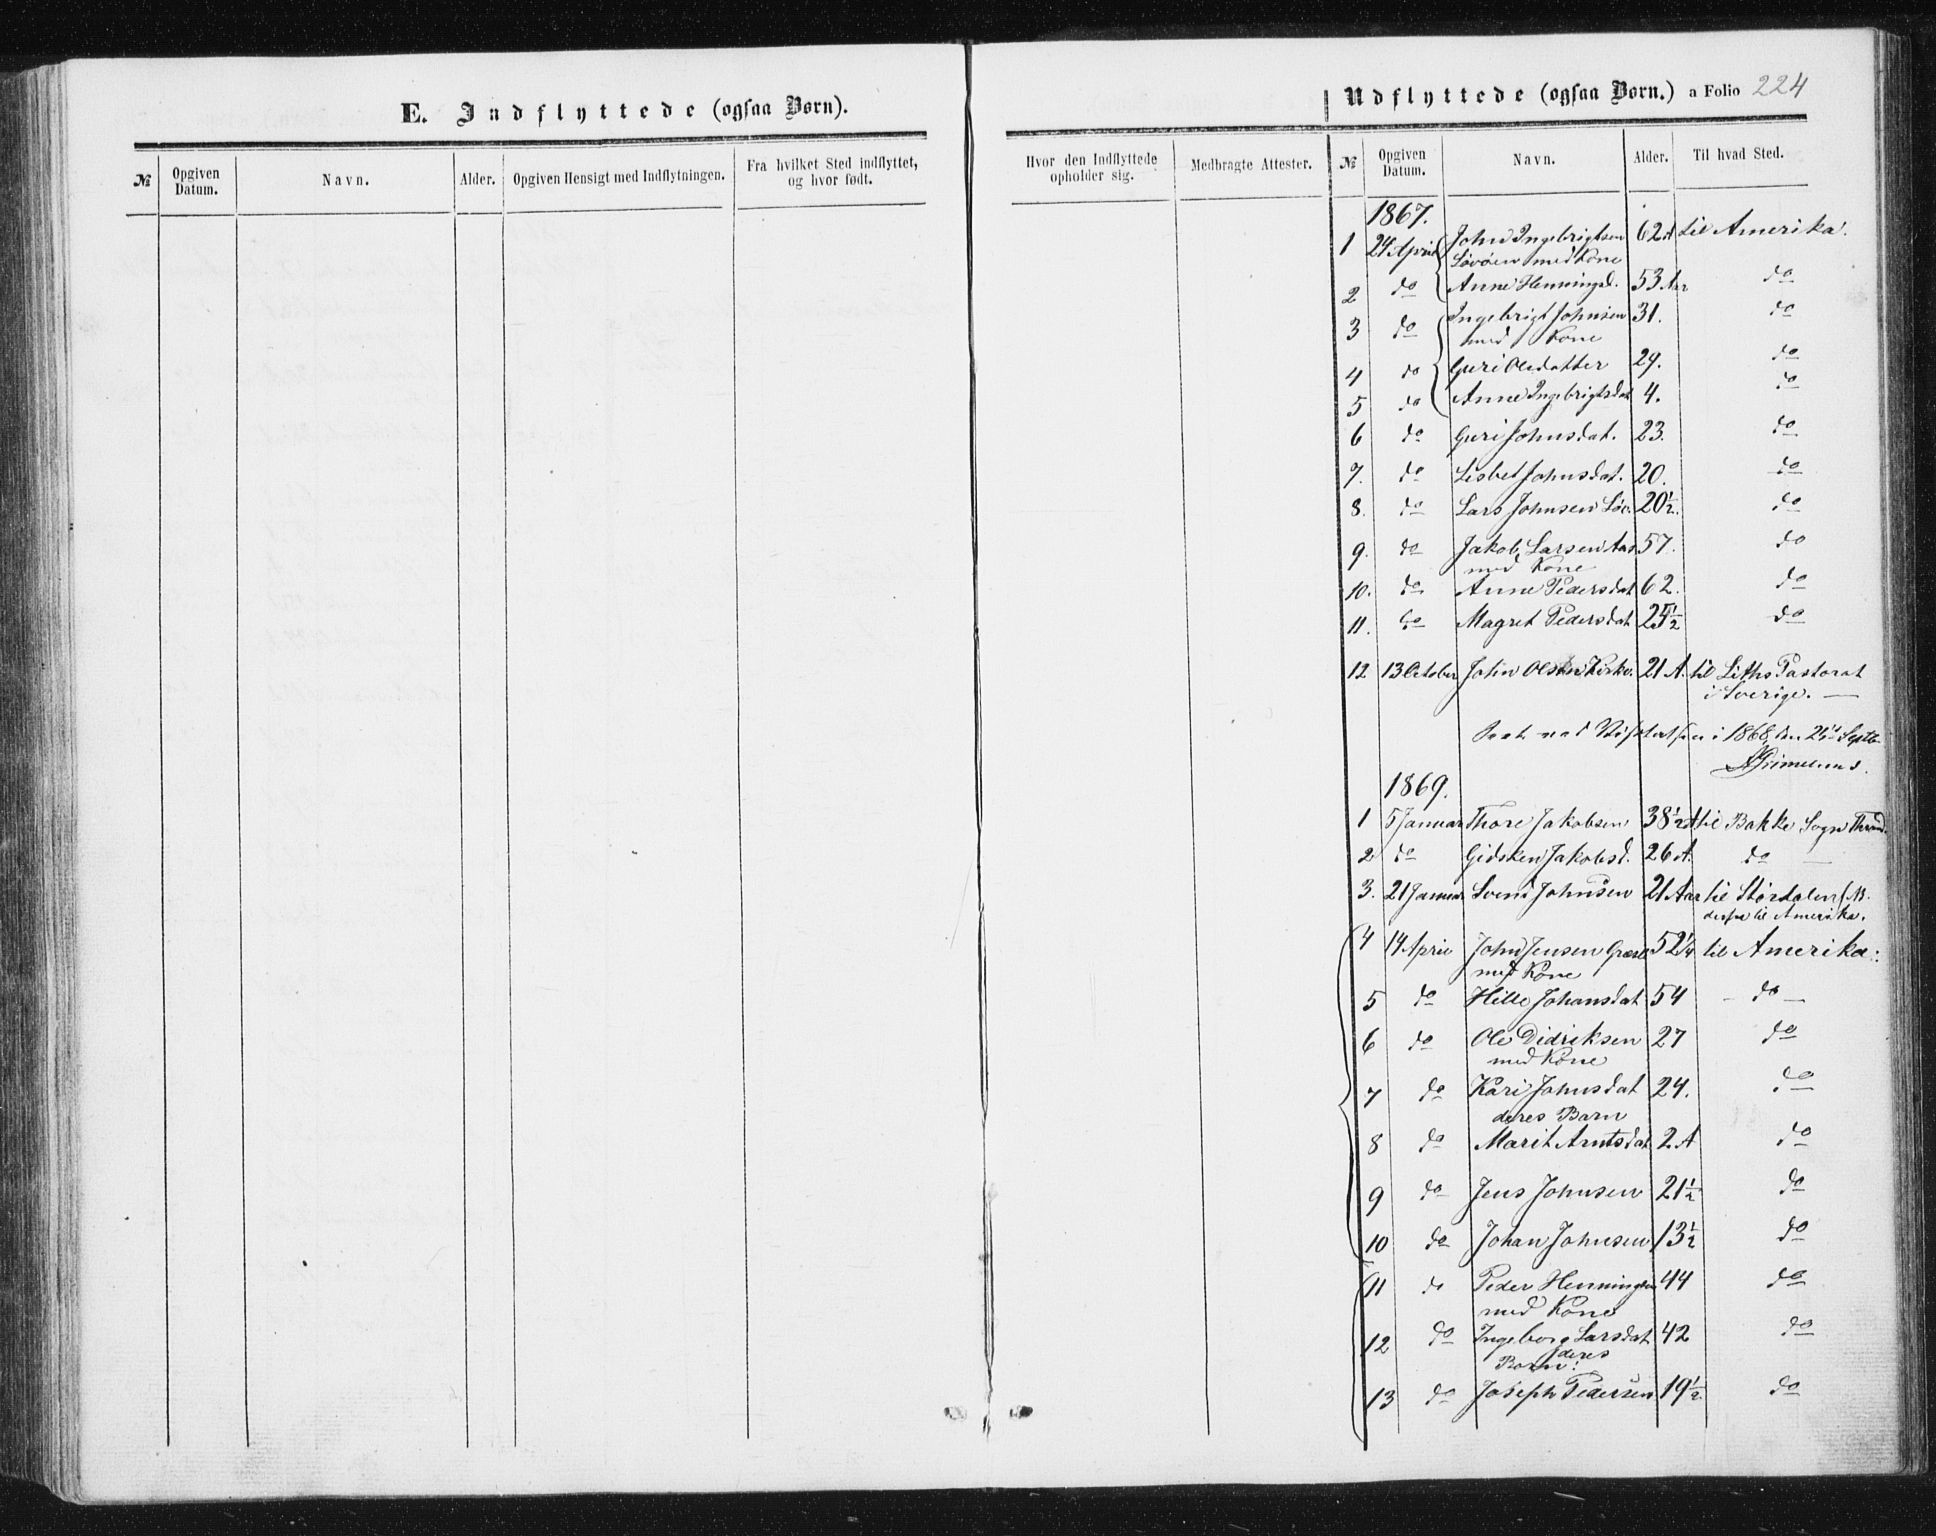 E. Indflyttede (ogsaa Børn).
Udflyttede (ogsaa Børn.) a Folio 224
№ Opgiven Datum. Navn. Alder. Opgiven Hensigt med Indflytningen. Fra hvilket Sted indflyttet, og hvor født.
Hvor den Indflyttede opholder sig. Medbragte Attester. № Opgiven Datum. Navn. Alder. Til hvad Sted.
1867.
1 24 April John Ingebrigtsen 62 A til Amerika.
med Kone
2 do Anne Henningsd. 53 Aar do
3 do Ingebrigt Johnsen 31. do
med Kone
4 do Guri Olesdatter 29. do
5 do Anne Ingebrigtsdat 4. do
6 do Guri Johnsdat. 23. do
7. do Lisbet Johnsdat. 20. do
8. do Lars Johnsen 20½. do
9. do Jakob Larsen Aas 57. do
med Kone
10. do Anne Pedersdat 62. do
11. do Magret Pedersdat 25½ do
12 13 October John Olsen 21 A. til Liths Pastorat
i Sverige. —
i 1868, den 26 Septb
1869.
1 5 Januar Thore Jakobsen 38½ A til Bakke Sogn Thrond.
2 do Gidsken Jakobsd. 26 A. do —
3. 21 Januar Svend Johnsen 21 Aar til Størdalen
til Amerika.
4 14 April John Jensen 52¼ til Amerika.
med Kone
5 do Hille Johansdat 54 – do –
6 do Ole Didriksen 27 do
med Kone
7 do Kari Johnsdat 24. do
deres Barn
8 do Marit Arntsdat 2 A do
9 do Jens Johnsen 21½ do
10 do Johan Johnsen 13½ do
11 do Peder Henningsen 44 do
med Kone
12 do Ingeborg Larsdat 42 do
deres
Børn:
13 do Joseph Pedersen 19½ do